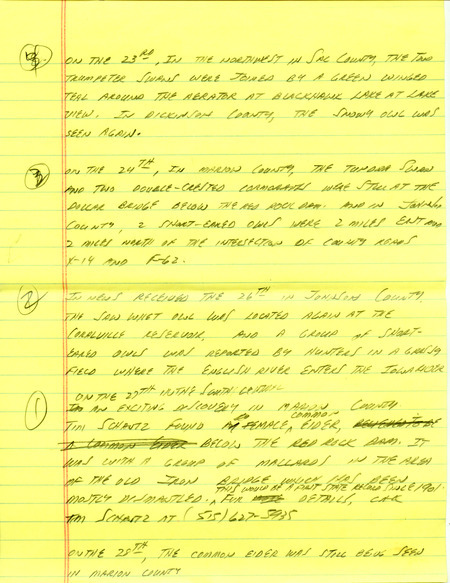 4. ON THE 23RD, IN THE NORTHWEST IN SAC COUNTY, THE TWO
TRUMPETER SWANS WERE JOINED BY A GREEN WINGED
TEAL AROUND THE AERATOR AT BLACKHAWK LAKE AT LAKE
VIEW. IN DICKINSON COUNTY, THE SNOWY OWL WAS
SEEN AGAIN.
3 ON THE 24TH, IN MARION COUNTY, THE TUNDRA SWAN
AND TWO DOUBLE-CRESTED CORMORANTS WERE STILL AT THE
BRIDGE BELOW THE RED ROCK DAM. AND IN
COUNTY, 2 SHORT-EARED OWLS WERE 2 MILES EAST AND
2 MILES NORTH OF THE INTERSECTION OF COUNTY ROADS
X-14 AND F-62.
2 IN NEWS RECEIVED THE 26TH IN JOHNSON COUNTY,
THE SAW WHET OWL WAS LOCATED AGAIN AT THE
CORALVILLE RESERVOIR, AND A GROUP OF SHORT-
EARED OWLS WAS REPORTED BY HUNTERS IN A GRASSY
FIELD WHERE THE ENGLISH RIVER ENTERS THE IOWA RIVER
ON THE 27TH IN THE SOUTH CENTRAL
1 IN AN EXCITING DISCOVERY IN MARION COUNTY
TIM SCHANTZ FOUND A FEMALE COMMON EIDER,
A COMMON EIDER BELOW THE RED ROCK DAM. IT
WAS WITH A GROUP OF MALLARDS IN THE AREA
OF THE OLD IRON BRIDGE WHICH HAS BEEN
THIS WOULD BE A FIRST STATE RECORD SINCE 1901.
MOSTLY DISMANTLED. FOR DETAILS, CALL
TIM SCHANTZ AT (515) 627-
ON THE 28TH, THE COMMON EIDER WAS STILL BEING SEEN
IN MARION COUNTY